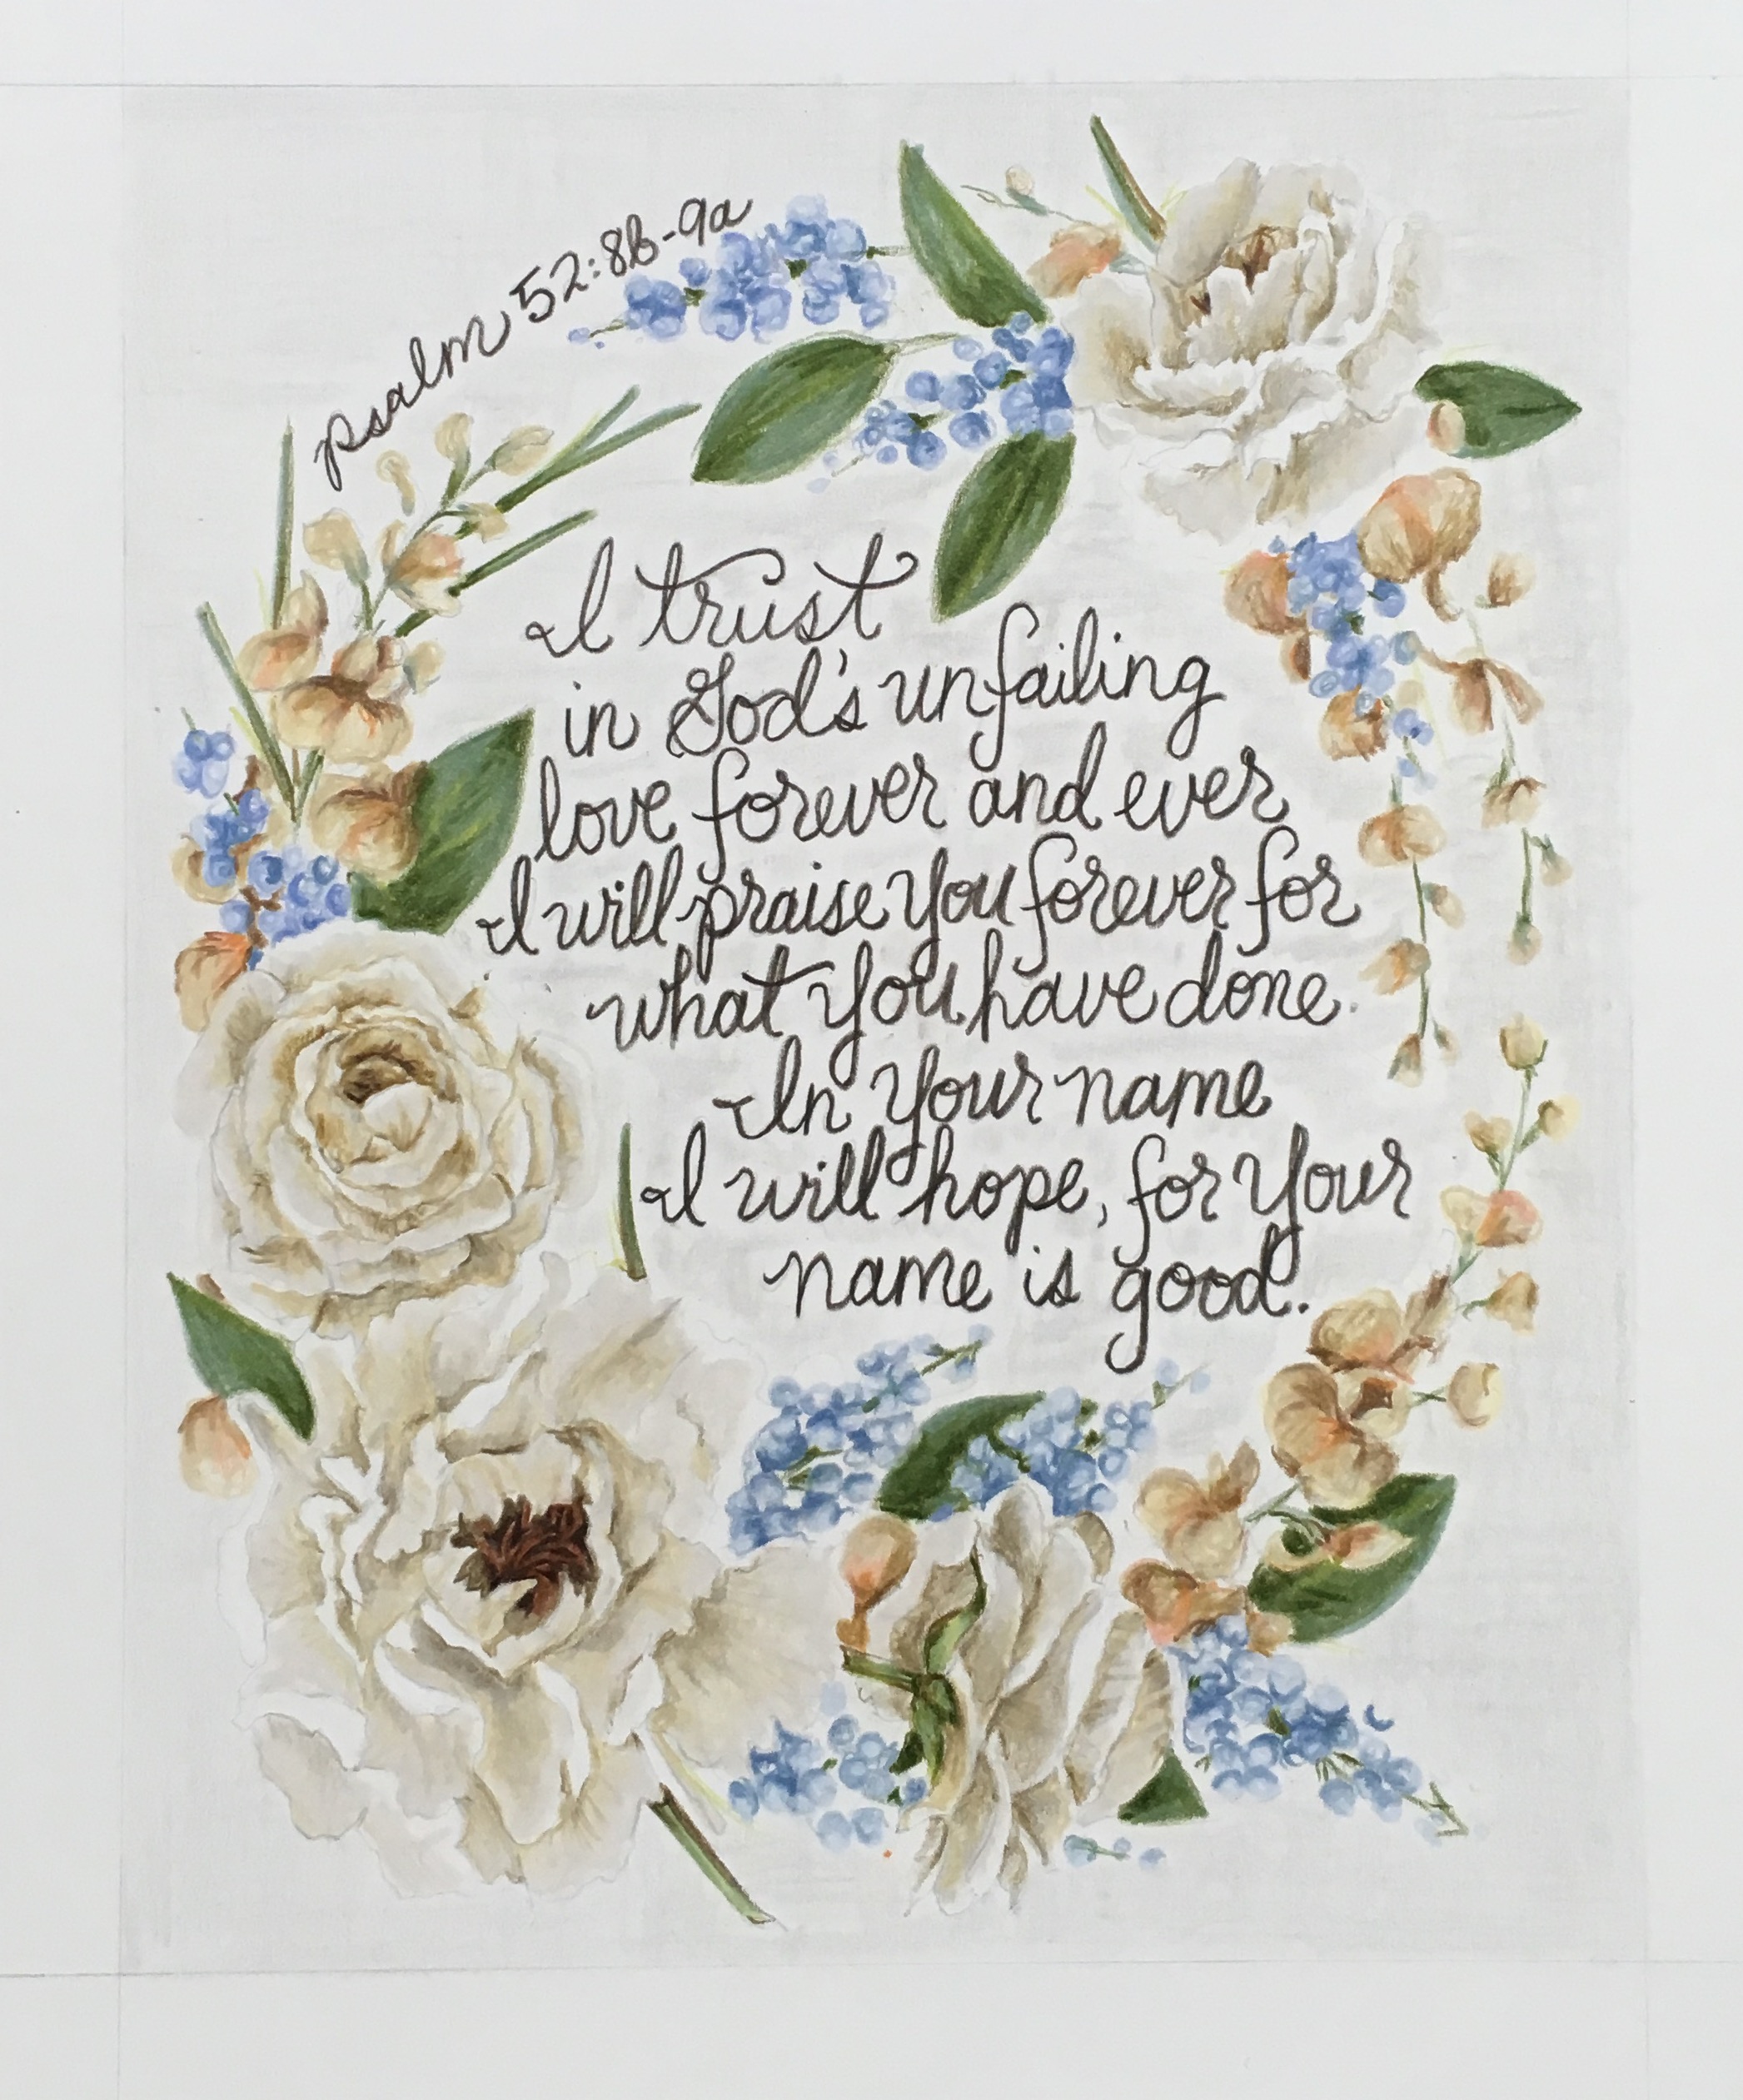 Psalm 52:8b-9a
I trust
in God's unfailing
love forever and ever
I will praise you forever for
what you have done.
In your name
I will hope, for your
name is good.